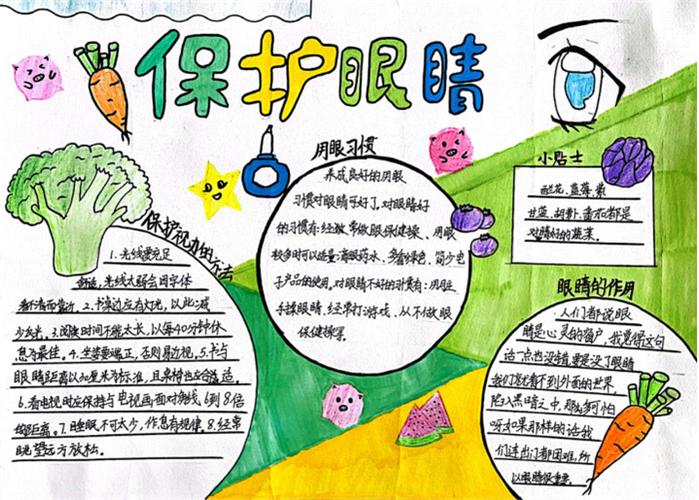 保护眼睛
用眼习惯
养成良好的用眼
习惯对眼睛可好了,对眼睛好
的习惯有:经常做眼保健操、用眼
较多时可以适量滴眼药水、多看绿色、减少电
子产品的使用。对眼睛不好的习惯有:用脏
手揉眼睛、经常打游戏、从不做眼
保健操等。
小贴士
西兰花、蓝莓、紫
甘蓝、胡萝卜、西瓜都是
对眼睛好的蔬菜。
保护视力的方法
1.光线要充足
舒适,光线太弱会因字体
看不清而靠近。2.书桌边应有灯光,以此减
少反光。3.阅读时间不能太长,以每40分钟休
息为最佳。4.坐姿要端正,否则易近视。5.书与
眼睛距离以30厘米为标准,且桌椅也应合适。
6.看电视时应保持与电视画面对角线6到8倍
的距离。7.睡眠不可太少,作息有规律。8.经常
眺望远方放松。
眼睛的作用
人们都说眼
睛是心灵的窗户,我觉得这句
话一点也没错,要是没了眼睛
我们就看不到外面的世界
陷入黑暗之中,那么可怕
呀!如果那样的话我
们进出门都困难,所
以眼睛很重要。